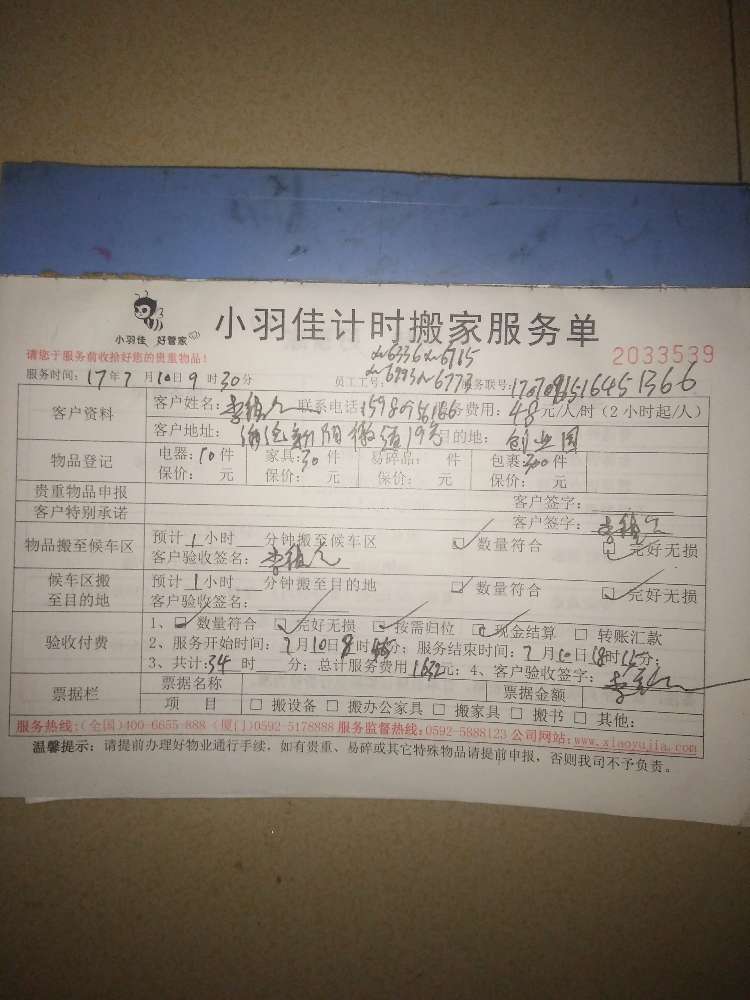 小羽佳 好管家
小羽佳计时搬家服务单
请您于服务前收拾好您的贵重物品!
2033539
服务时间:17年7月10日9时30分 员工工号: 服务联号:
客户资料
客户姓名: 联系电话: 服务费用:48元/人/时(2小时起/人)
客户地址: 目的地:创业园
物品登记
电器:10件 家具:30件 易碎品: 件 包裹:300件
保价: 元 保价: 元 保价: 元 保价: 元
贵重物品申报 客户签字:
客户特别承诺 客户签字:
物品搬至候车区
预计1小时 分钟搬至候车区 数量符合 完好无损
客户验收签名:
候车区搬至目的地
预计1小时 分钟搬至目的地 数量符合 完好无损
客户验收签名:
验收付费
1、数量符合 完好无损 按需归位 现金结算 转账汇款
2、服务开始时间:7月10日8时 分;服务结束时间:7月10日18时15分;
3、共计:34时 分;总计服务费用1632元;4、客户验收签字:
票据栏
票据名称 票据金额
项 目 搬设备 搬办公家具 搬家具 搬书 其他:
服务热线:(全国)400-6655-888 (厦门)0592-5178888 服务监督热线:0592-5888123 公司网站:www.xiaoyujia.com
温馨提示:请提前办理好物业通行手续,如有贵重、易碎或其它特殊物品请提前申报,否则我司不予负责。